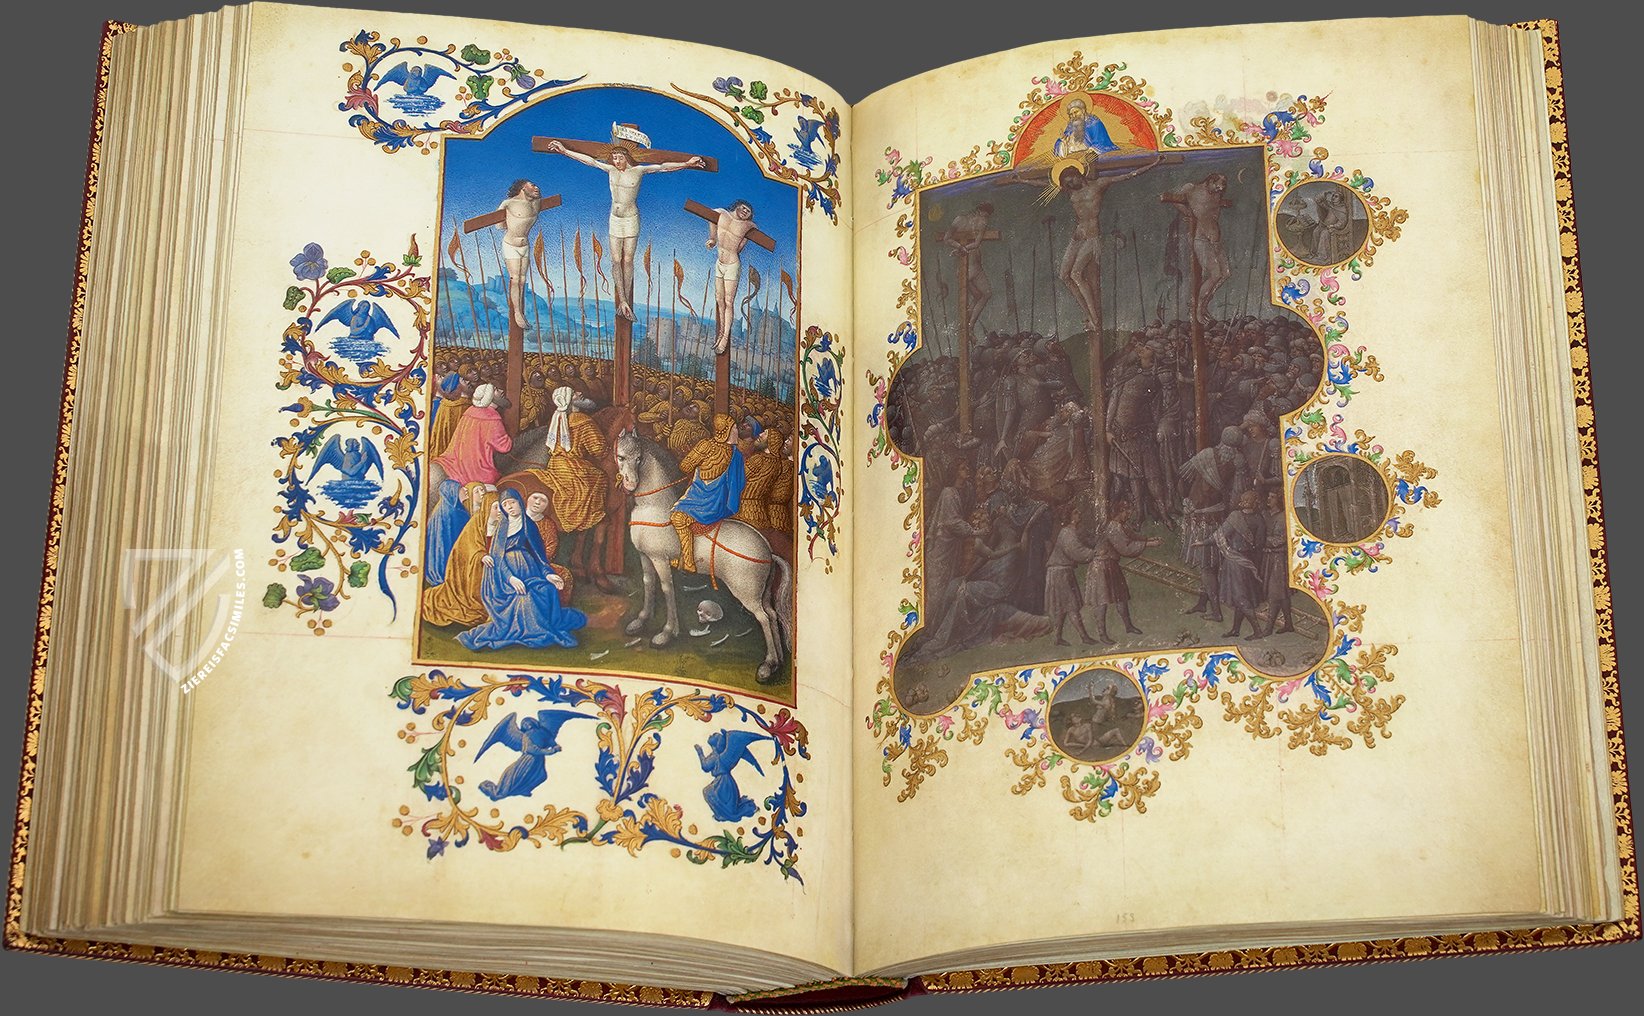 ZIEREISFACSIMILES.COM
153